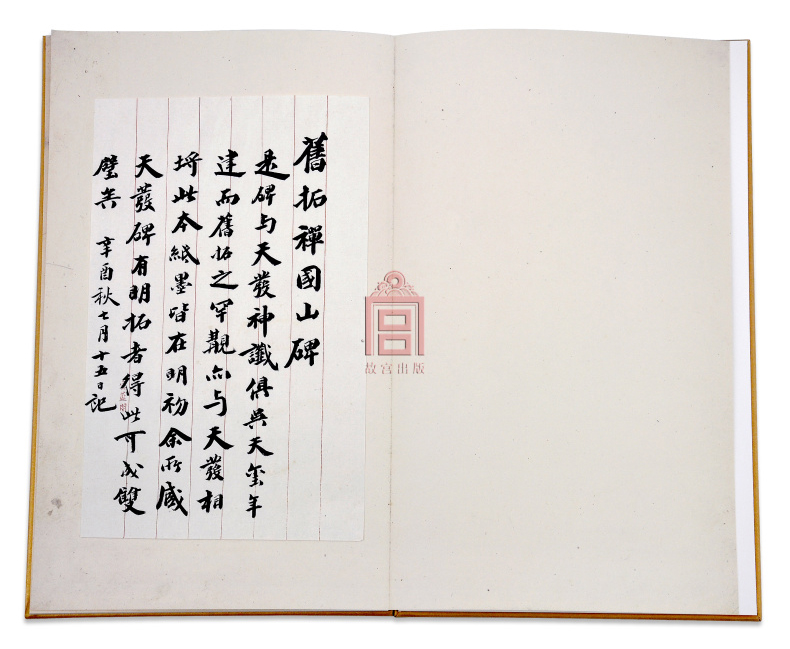 舊拓禪國山碑
是碑与天發神讖俱吳天璽年
建而舊拓之罕觀亦与天發相
埒此本紙墨皆在明初余所臧
天發碑有明拓者得此可成雙
璧矣 辛酉秋七月十五日記
故宫出版